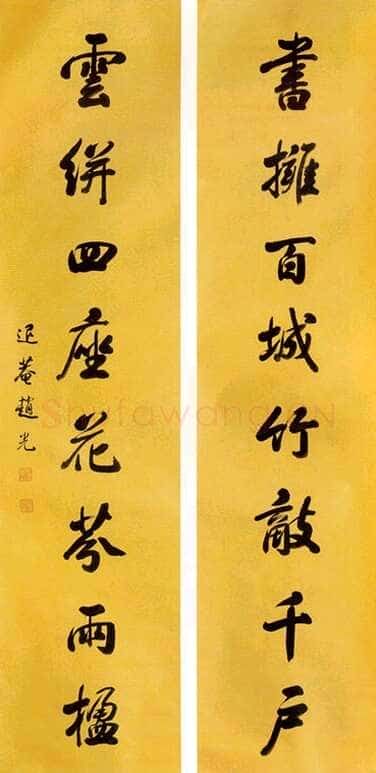 書擁百城竹敲千戶
雲絣四座花芬兩楹
退菴趙光
Shufawang.CN